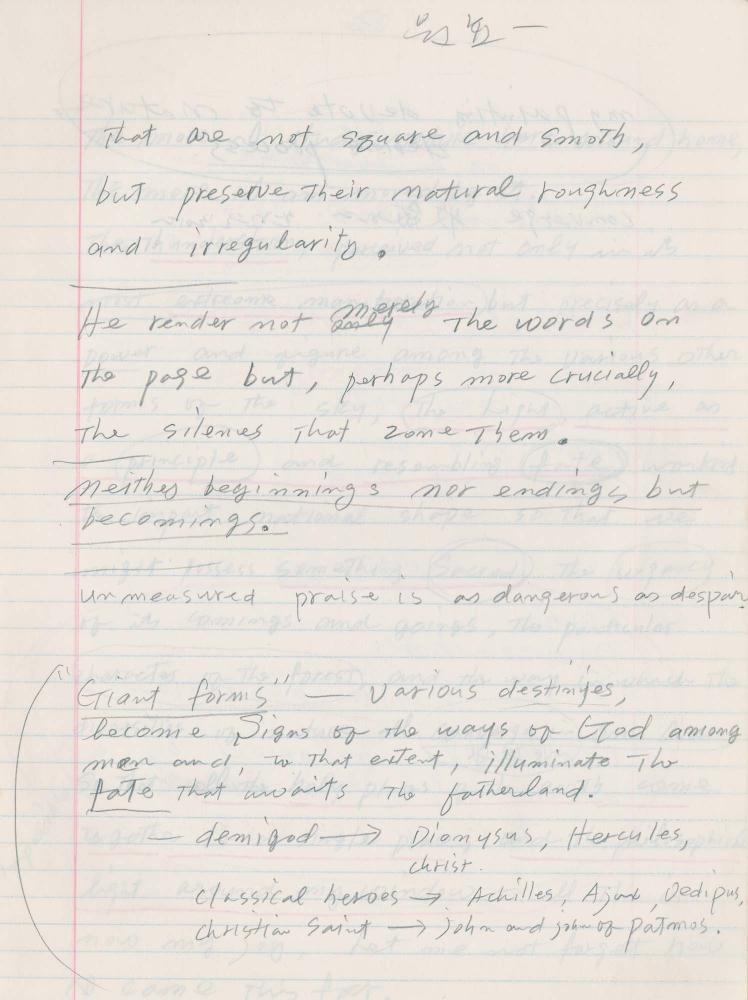 That are not square and smoth,
but preserve their natural roughness
and irregularity.
He render not only merely the words on
the page but, perhaps more crucially,
the silences that zone them.
neither beginnings nor endings but
becomings.
unmeasured praise is as dangerous as despair
"Giant forms" — various destinies,
become Signs of the ways of God among
men and, to that extent, illuminate the
fate that awaits the fatherland.
— demigod → Dionysus, Hercules,
christ.
Classical heroes → Achilles, Ajax, Oedipus,
christian Saint → John and john of patmos.